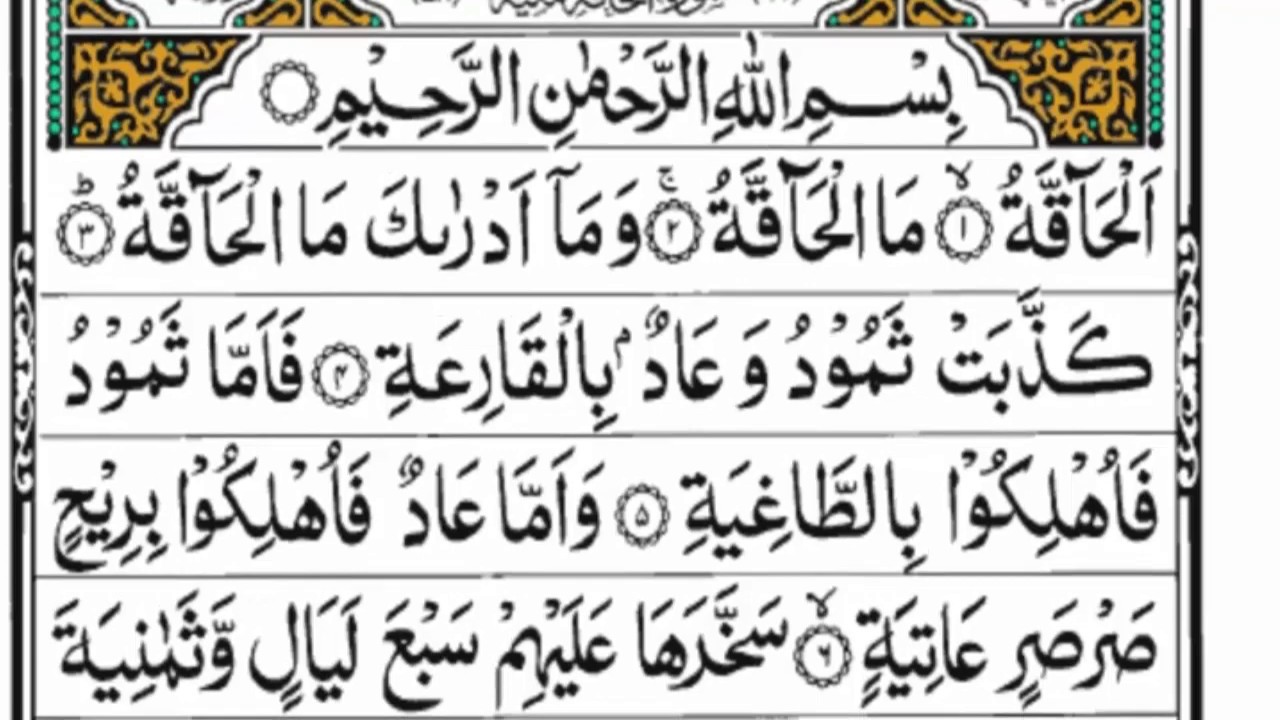 بِسْمِ اللهِ الرَّحْمٰنِ الرَّحِيْمِ
اَلْحَآقَّةُ ۙ﴿۱﴾ مَا الْحَآقَّةُ ۚ﴿۲﴾ وَمَآ اَدْرٰىكَ مَا الْحَآقَّةُ ؕ﴿۳﴾
كَذَّبَتْ ثَمُوْدُ وَ عَادٌۢ بِالْقَارِعَةِ ﴿۴﴾ فَاَمَّا ثَمُوْدُ
فَاُهْلِكُوْا بِالطَّاغِيَةِ ﴿۵﴾ وَاَمَّا عَادٌ فَاُهْلِكُوْا بِرِيْحٍ
صَرْصَرٍ عَاتِيَةٍ ۙ﴿۶﴾ سَخَّرَهَا عَلَيْهِمْ سَبْعَ لَيَالٍ وَّثَمٰنِيَةَ